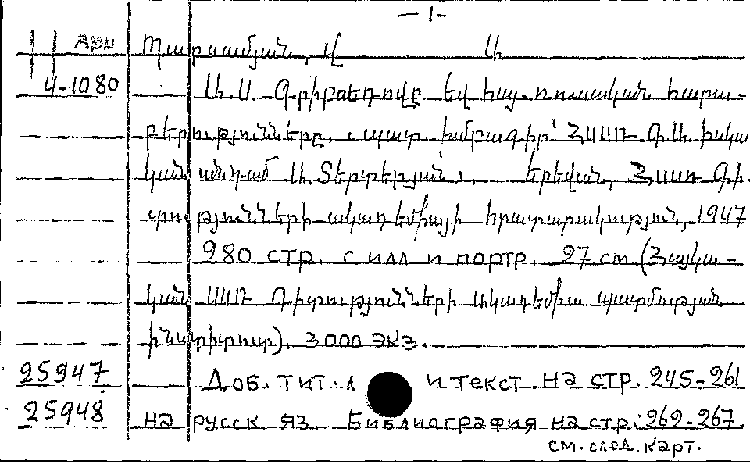 — 1 —
Арм Պարսամյան, Վ Ա
4-1080 Ա. Ս. Գրիբոեդովը եվ հայ-ռուսական հարա-
բերությունները, պատ. խմբագիր՝ ՀՍՍՌ Գ.Ա. իսկա
կան անդամ Ա. Տերտերյան. Երեվան, ՀՍՍՌ Գի-
տությունների ակադեմիայի հրատարակություն, 1947
280 стр. с илл и портр. 27 см (Հայկա-
կան ՍՍՌ Գիտությունների Ակադեմիա պատմության
ինստիտուտ). 3000 экз.
25947 Доб. тит. л и текст на стр. 245-261
25948 на русск яз. Библиография на стр. 262-267.
см. след. карт.